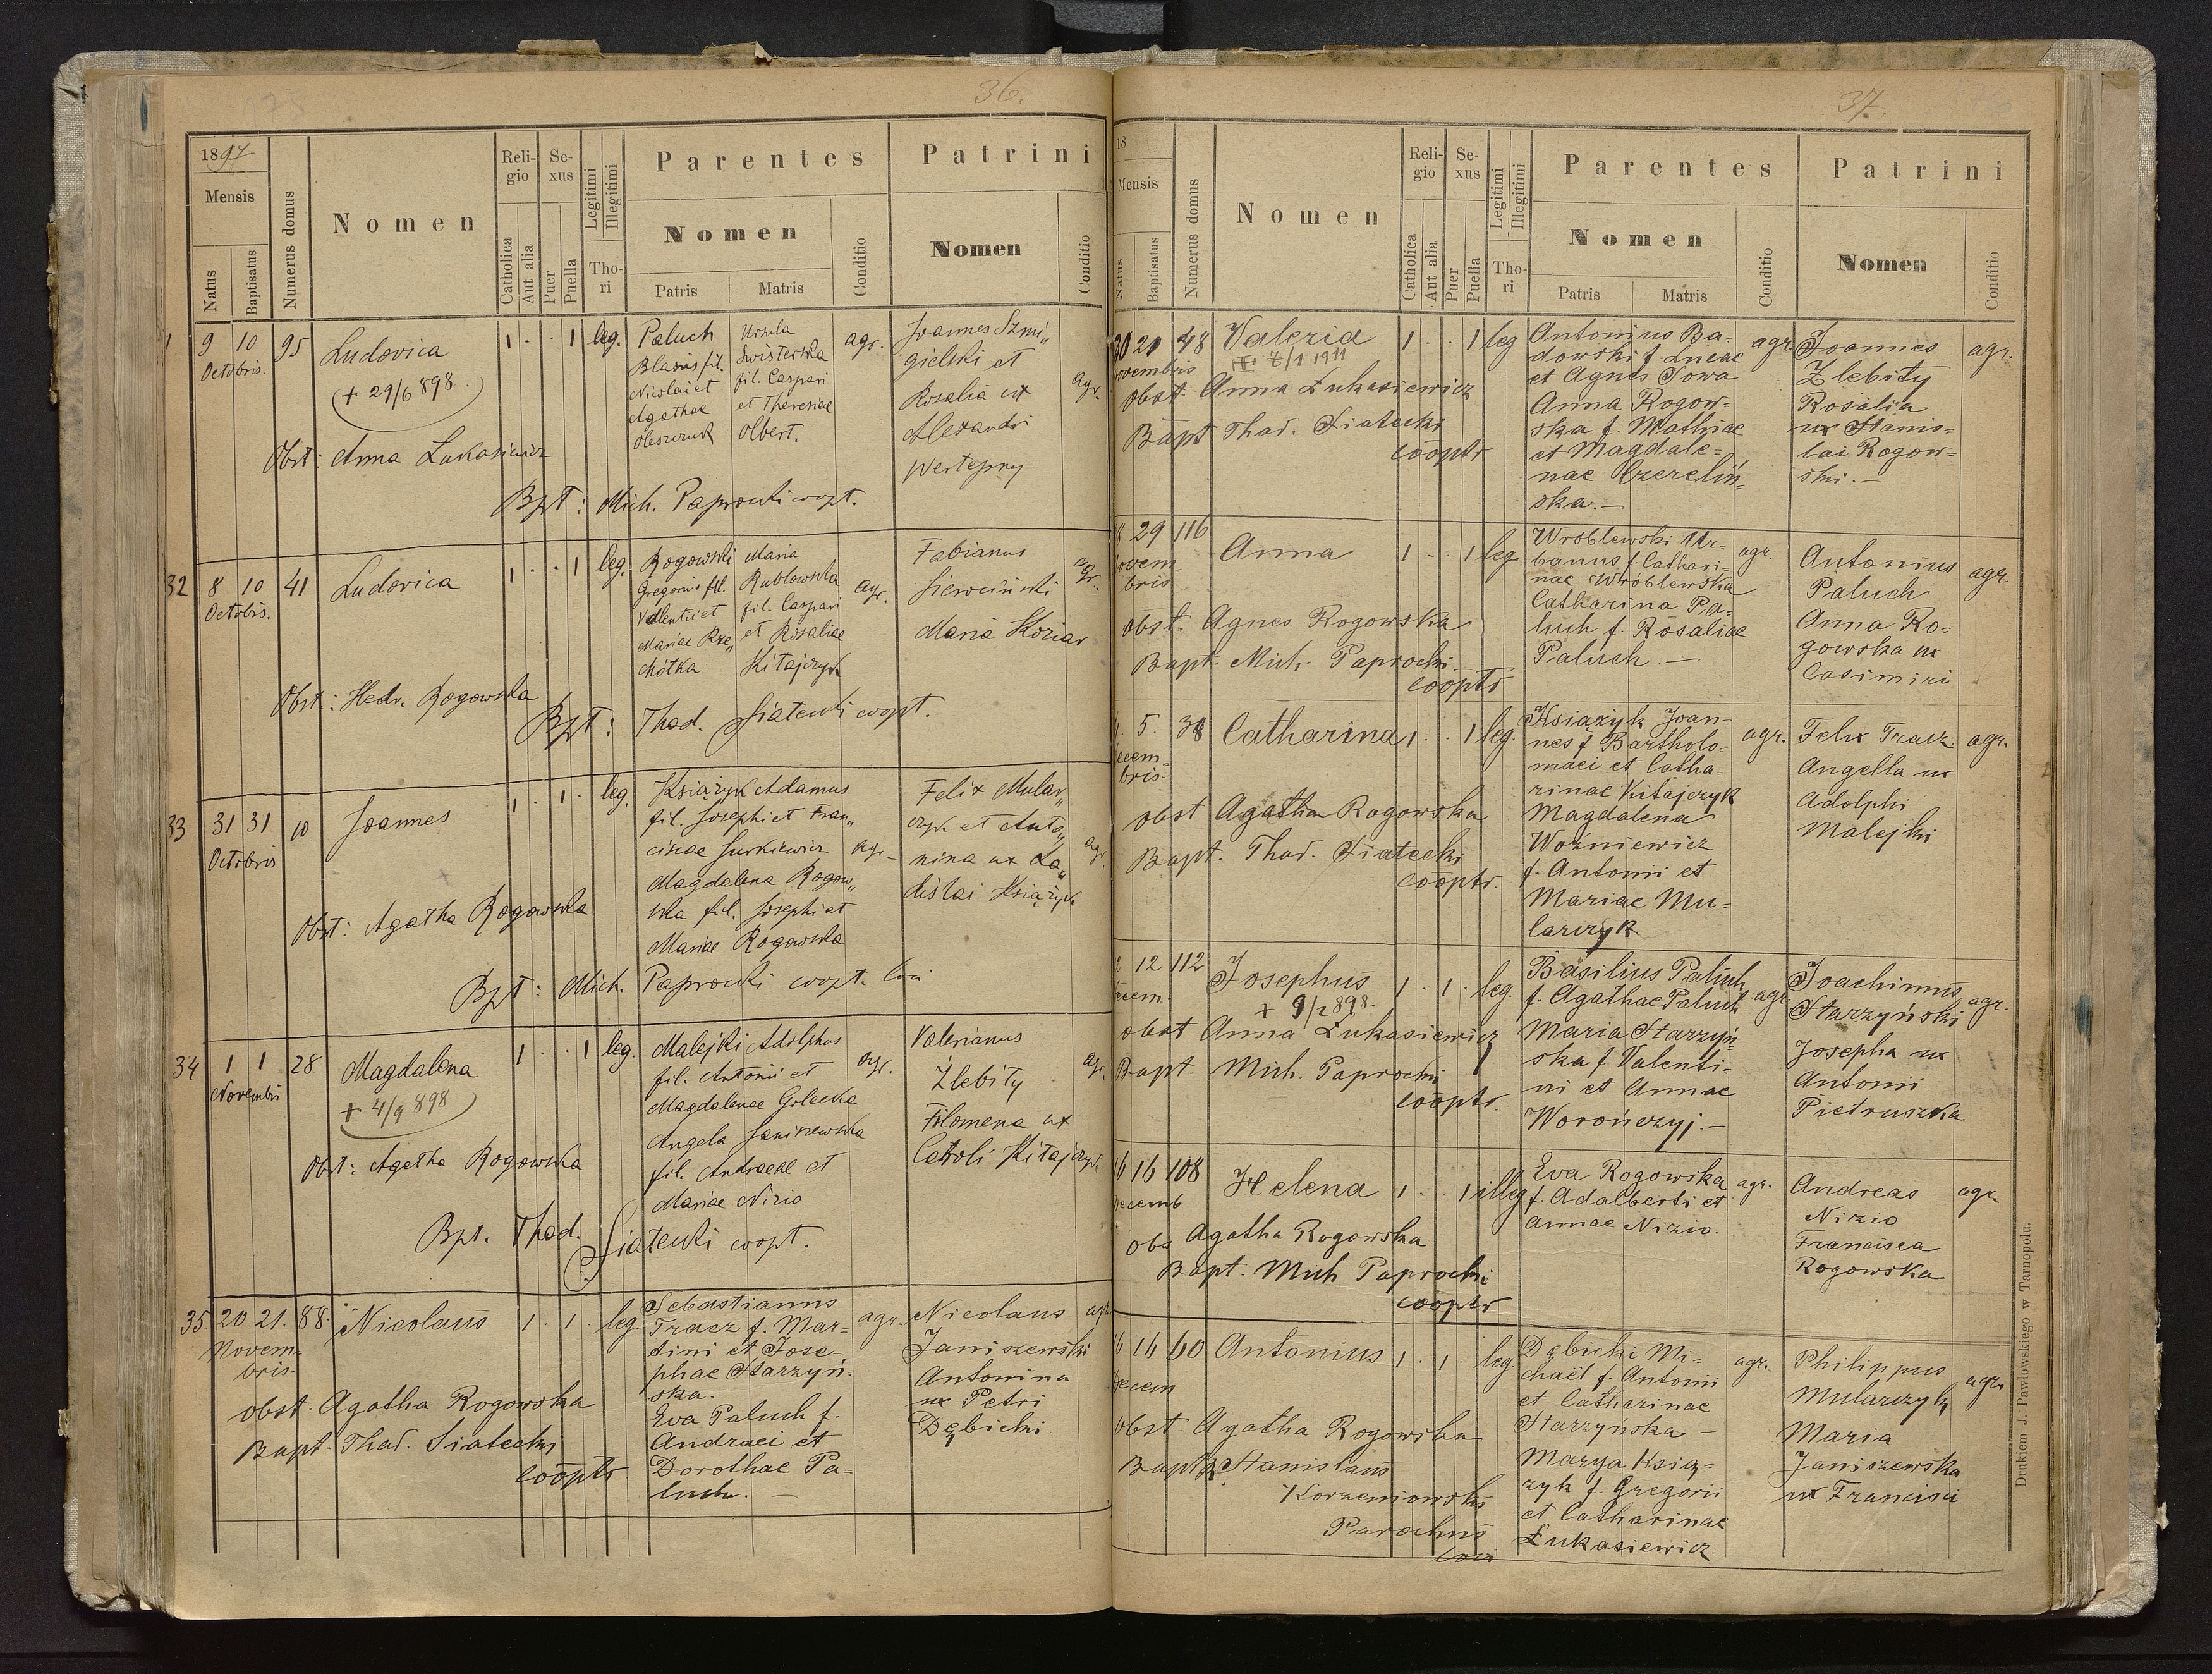 36.
1897
Mensis
Natus
Baptisatus
Numerus domus
Nomen
Religio
Catholica
Aut alia
Sexus
Puer
Puella
Legitimi
Illegitimi
Thori
Parentes
Nomen
Patris
Matris
Conditio
Patrini
Nomen
Conditio
9 10 95 Ludovica 1 . . 1 leg.
Octobris.
+ 29/6 898
Paluch
Blasius fil.
Nicolai et
Agathae
Oleszczuk
Urzula
Swisterska
fil. Caspari
et Theresiae
Olbert.
agr.
Joannes Szmi„
gielski et
Rosalia ux
Alexandri
Wertepny
agr.
Obst: Anna Łukasiewicz
Bpt: Mich. Paprocki coopt.
32 8 10 41 Ludovica 1 . . 1 leg.
Octobris.
Rogowski
Gregorius fil.
Valentii et
Mariae Rze„
chótka
Maria
Rublowska
fil. Caspari
et Rosaliae
Kitajczyk
agr.
Fabianus
Sierciński
Maria Koziar
agr.
Obst: Hedv. Rogowska
Bpt: Thad. Siatecki coopt.
33 31 31 10 Joannes 1 . 1 . leg.
Octobris
Książyk Adamus
fil. Josephi et Fran„
ciscae Jurkiewicz
Magdalena Rogow„
ska fil. Josephi et
Mariae Rogowska
agr.
Felix Mular„
czyk et Anto„
nina ux La„
dislai Książyk
agr.
Obst: Agatha Rogowska
Bpt: Mich. Paprocki coopt. loci
34 1 1 28 Magdalena 1 . . 1 leg.
Novembris
+ 4/9 898
Malejki Adolphus
fil. Antonii et
Magdalenae Golecka
Angela Janiszewska
fil. Andraeae et
Mariae Nizio
agr.
Valerianus
Żlebity
Filomena ux
Caroli Kitajczyk
agr.
Obst: Agatha Rogowska
Bpt. Thad. Siatecki coopt.
35. 20 21. 88. Nicolaus 1 . 1 . leg.
Novem-
bris.
Sebastianus
Tracz f. Mar=
tini et Jose-
phae Starzyń-
ska.
Eva Paluch f.
Andraei et
Dorothae Pa=
luch. —
agr.
Nicolaus
Janiszewski
Antonina
ux Petri
Dębicki
agr.
obst. Agatha Rogowska
Bapt. Thad. Siatecki
cooptr
37.
18
Mensis
Natus
Baptisatus
Numerus domus
Nomen
Religio
Catholica
Aut alia
Sexus
Puer
Puella
Legitimi
Illegitimi
Thori
Parentes
Nomen
Patris
Matris
Conditio
Patrini
Nomen
Conditio
20 21 48 Valeria 1 . . 1 leg
vembris
+ 7/1 1911
Antonius Ba-
dowski f. Lucae
et Agnes Sowa
Anna Rogow-
ska f. Mathiae
et Magdale-
nae Czereliń-
ska. —
agr.
Joannes
Zlebity
Rosalia
ux Stanis=
lai Rogow=
ski. —
agr.
Obst. Anna Łukasiewicz
Bapt Thad. Siatecki
cooptr
29 116 Anna 1 . . 1 leg
ovem-
bris
Wroblewski Ur-
banus f. Cathari-
nae Wroblewska
Catharina Pa-
luch f. Rosaliae
Paluch. —
agr.
Antonius
Paluch
Anna Ro=
gowska ux
Casimiri
agr.
obst. Agnes Rogowska
Bapt. Mich. Paprocki
cooptr
5. 38 Catharina 1 . . 1 leg.
ecem-
bris.
Książyk Joan-
nes f Bartholo-
maei et Catha-
rinae Kitajczyk
Magdalena
Woźniewicz
f. Antonii et
Mariae Mu=
larczyk
agr.
Felix Tracz
Angella ux
Adolphi
Malejki
agr.
obst Agatha Rogowska
Bapt. Thad. Siatecki
cooptr.
12 112 Josephus 1 . 1 . leg.
ecem.
+ 9/2 898.
Basilius Paluch
f. Agathae Paluch
Maria Starzyń-
ska f Valenti-
ni et Annae
Worończyj. —
agr
Joachimus
Starzyński
Josepha ux
Antonii
Pietruszka
agr.
obst Anna Łukasiewicz
Bapt. Mich. Paprocki
cooptr.
16 16 108 Helena 1 . . 1 illeg
ecemb
Eva Rogowska
f. Adalberti et
Annae Nizio.
agr.
Andreas
Nizio
Francisca
Rogowska
agr.
obs Agatha Rogowska
Bapt. Mich Paprocki
cooptr
16 60 Antonius 1 . 1 . leg.
ecem
Dębicki Mi-
chaël f. Antonii
et Catharinae
Starzyńska —
Marya Ksią-
zyk f. Gregorii
et Catharinae
Łukasiewicz.
agr.
Philippus
Mularczyk
Maria
Janiszewska
ux Francisci
agr.
obst Agatha Rogowska
Bapt. Stanislaus
Korzeniowski
Parochus
loci
Drukiem J. Pawłowskiego w Tarnopolu.